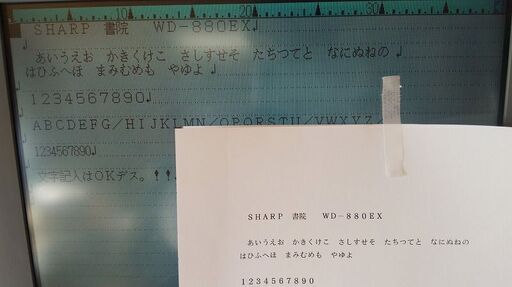 10 20 30
SHARP 書院 WD-880EX↲
あいうえお かきくけこ さしすせそ たちつてと なにぬねの↲
はひふへほ まみむめも やゆよ↲
1234567890↲
ABCDEFG/HIJKLMN/OPQRSTU/VWXYZ
1234567890↲
文字記入はOKデス。!!
SHARP 書院 WD-880EX
あいうえお かきくけこ さしすせそ たちつてと なにぬねの
はひふへほ まみむめも やゆよ
1234567890